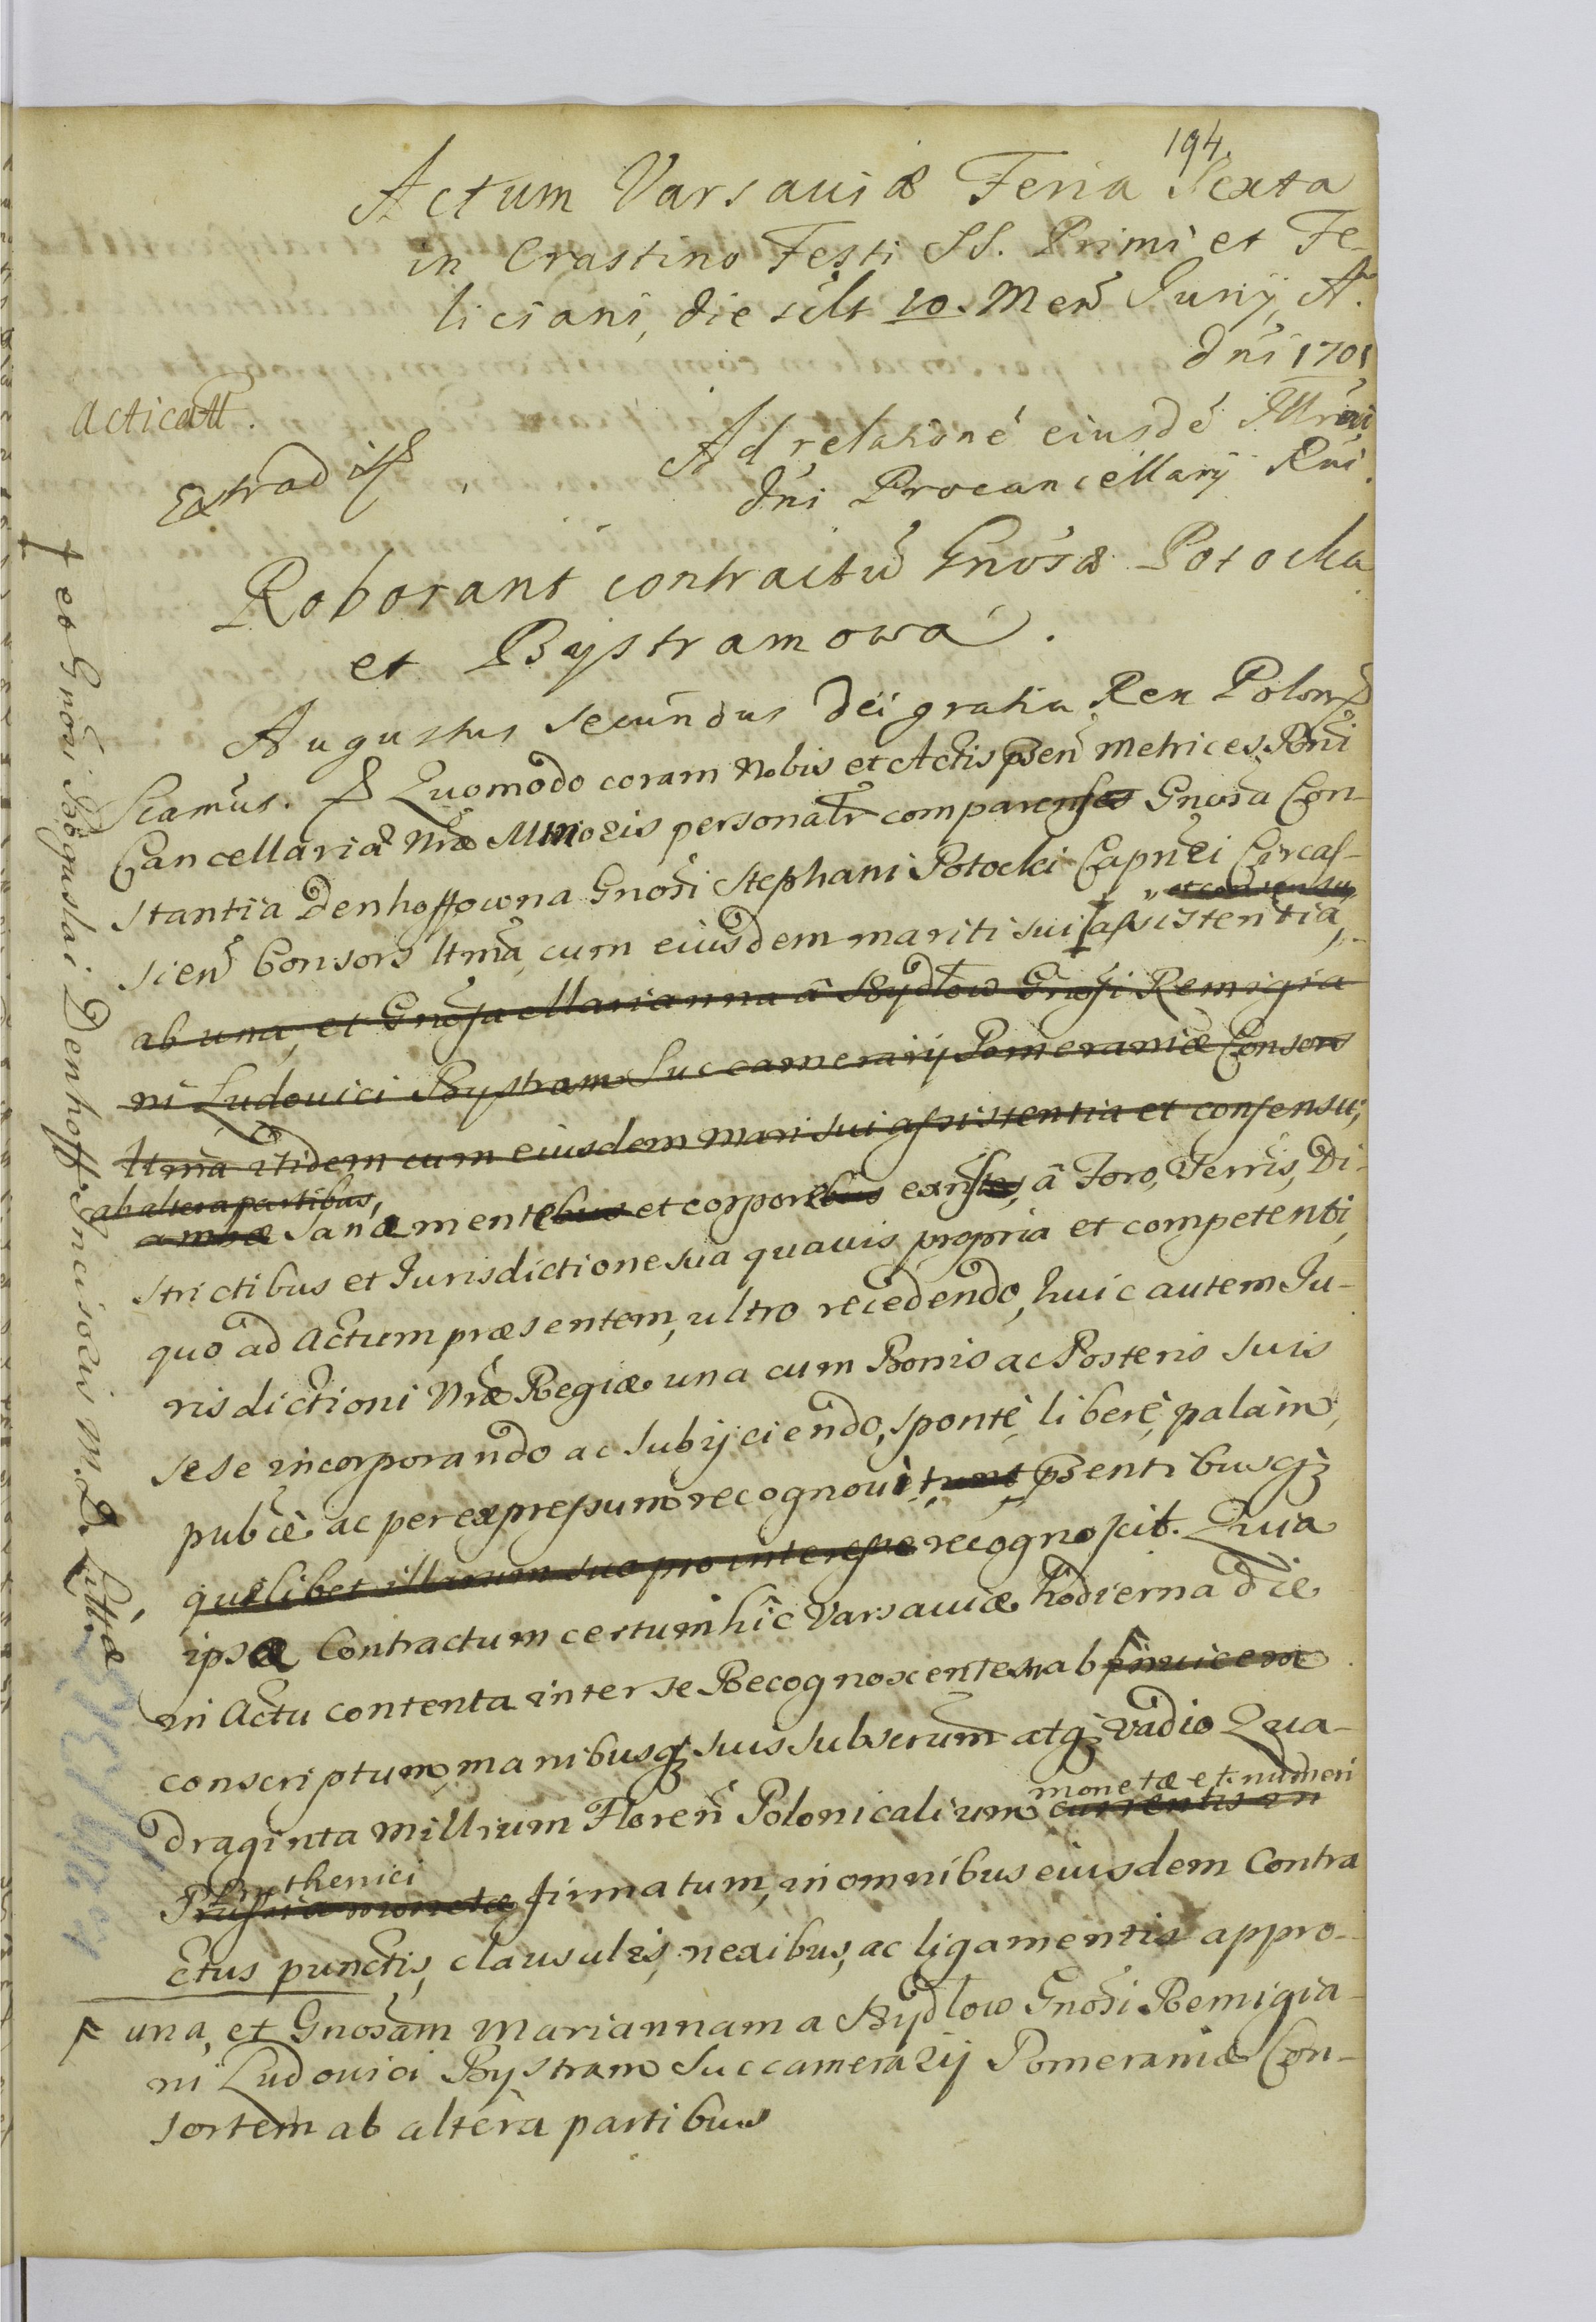 194.
Actum Varsauiæ Feria Sexta
in Crastino Festi SS. Primi et Fe-
liciani, die scilt 10. Menš Junij, Aº.
dni 1701
Acticatt.
Extradit
Ad relationé eiusdé Illrmi
dni Procancellarij Rni.
Roborant contractũ Gnosæ Potocka
et Bystramowa.
Augustus Secundus Dei gratia Rex Polon
Sciamus. Quomodo coram Nobis et Actis psen Metrices Rni
Cancellariæ Nræ Minoris personatr comparenses Gnosa Con-
stantia Denhoffowna Gnosi Stephani Potocki Capnei Circas-
et consensu
sien Consors ltma, cum eiusdem mariti sui † assistentia,
ab una, et Gnosa Marianna a Bydlow Gnosi Remigia
ni Ludouici Bystram Succamerarij Pomeraniæ Consors
ltma itidem cum eiusdem mari sui assistentia et consensu;
ab altera partibus,
ambæ Sanæ mentebus et corporebus exnstes, â Foro, Terris, Di-
strictibus et Jurisdictione sua quauis propria et competenti,
quo ad Actum præsentem, ultro recedendo, huic autem Ju-
risdictioni Nræ Regiæ una cum Bonis ac Posteris suis
sese incorporando ac subijciendo, sponte, libere, palàm,
publcè ac per expressum recognouit runt psentibusq3
quilibet illarum suo pro interesse recognoscit. Quia
ipsa Contractum certum hîc Varsauiæ hodierna die
in Actu contenta inter se Recognoscentem ab F inuicem
conscriptum, manibusq3 suis subscrium atq3 vadio Qua-
draginta Millium Floren Polonicalium currentis in
monetæ et numeri
Prussia monetæ firmatum, in omnibus eiusdem Contra
thenici
ctus punctis, clausulis, nexibus, ac ligamentis appro-
F una, et Gnosam Mariannam a Bydlow Gnosi Remigia-
ni Ludouici Bystram Succamerarij Pomeraniæ Con-
sortem ab altera partibus
† et Gnosi Boguslai Denhoff Incisoris M. D. Littæ